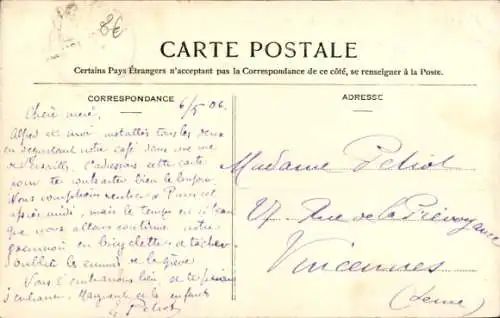 8€
CARTE POSTALE
Certains Pays Étrangers n'acceptant pas la Correspondance de ce côté, se renseigner à la Poste.
CORRESPONDANCE
6/5 06.
ADRESSE
Chère mère,
Alfred et moi installés tous les deux
en dégustant notre café dans une rue
de Versailles, t'adressons cette carte
pour te souhaiter bien le bonjour
Nous comptions rentrer à Paris cet
après midi, mais le temps est si beau
que nous allons continuer notre
en bicyclette et tâcher
d'oublier les ennuis de la grève
Vous embrassons bien
Marguerite et les enfants
Petiot
Madame Petiot
27 Rue de la Prévoyance
Vincennes
(Seine)